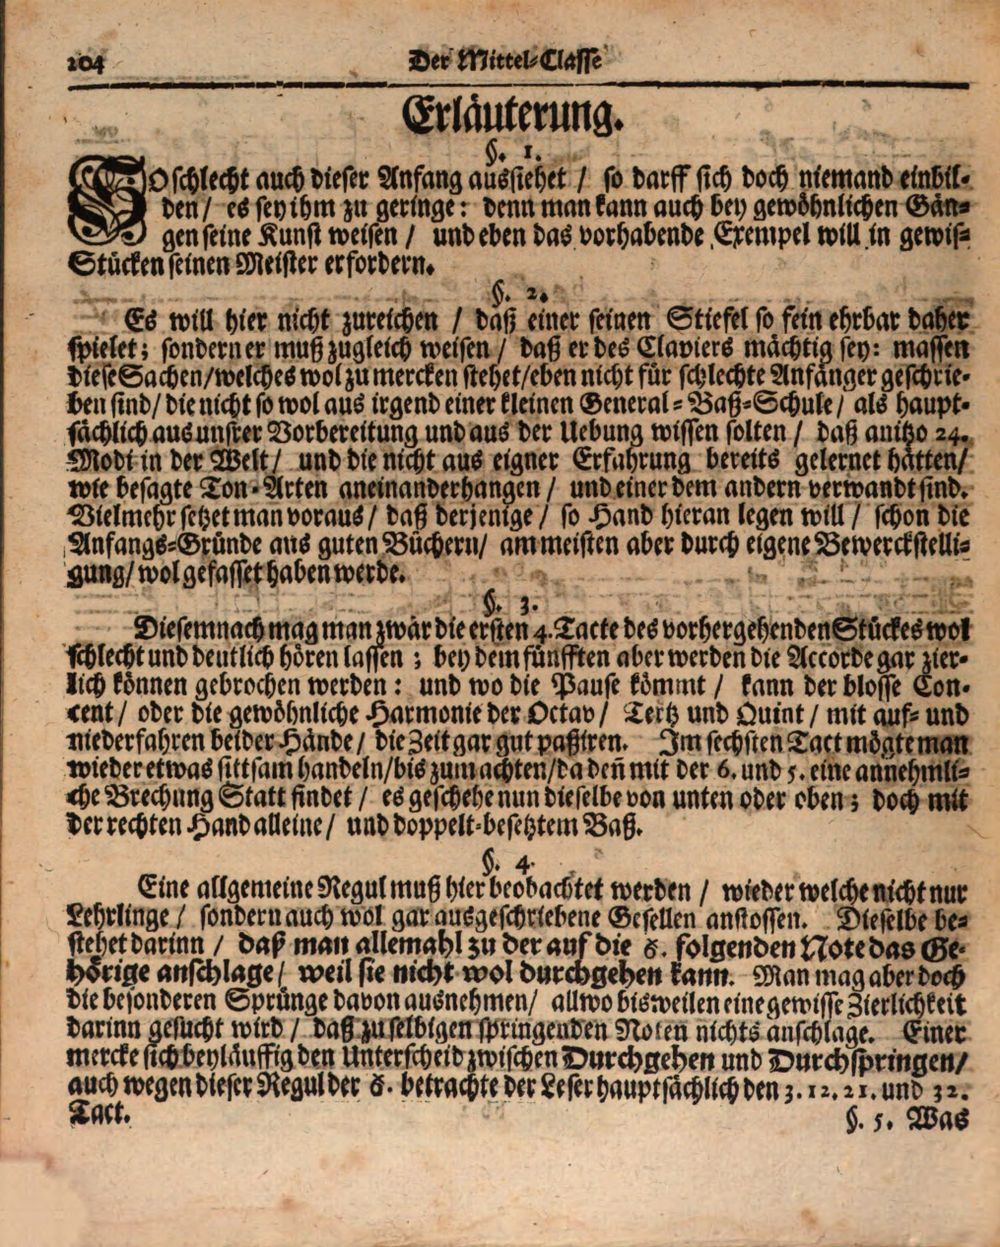 204 Der Mittel-Classe
Erläuterung.
§. 1.
SO schlecht auch dieser Anfang aussiehet / so darff sich doch niemand einbil-
den / es sey ihm zu geringe: denn man kann auch bey gewöhnlichen Gän-
gen seine Kunst weisen / und eben das vorhabende Exempel will in gewis-
Stücken seinen Meister erfordern.
§. 2.
Es will hier nicht zureichen / daß einer seinen Stiefel so fein ehrbar daher
spielet; sondern er muß zugleich weisen / daß er des Claviers mächtig sey: massen
diese Sachen / welches wol zu mercken stehet / eben nicht für schlechte Anfänger geschrie-
ben sind / die nicht so wol aus irgend einer kleinen General-Baß-Schule / als haupt-
sächlich aus unsrer Vorbereitung und aus der Uebung wissen solten / daß anitzo 24.
Modi in der Welt / und die nicht aus eigner Erfahrung bereits gelernet hätten /
wie besagte Ton-Arten aneinanderhangen / und einer dem andern verwandt sind.
Vielmehr setzet man voraus / daß derjenige / so Hand hieran legen will / schon die
Anfangs-Gründe aus guten Büchern / am meisten aber durch eigene Bewerckstelli-
gung / wol gefasset haben werde.
§. 3.
Diesemnach mag man zwar die ersten 4. Tacte des vorhergehenden Stückes wol
schlecht und deutlich hören lassen; bey dem fünfften aber werden die Accorde gar zier-
lich können gebrochen werden: und wo die Pause kömmt / kann der blosse Con-
cent / oder die gewöhnliche Harmonie der Octav / Tertz und Quint / mit auf- und
niederfahren beider Hände / die Zeit gar gut paßiren. Im sechsten Tact mögte man
wieder etwas sittsam handeln / bis zum achten / da deñ mit der 6. und 5. eine annehmli-
che Brechung Statt findet / es geschehe nun dieselbe von unten oder oben; doch mit
der rechten Hand alleine / und doppelt-besetztem Baß.
§. 4.
Eine allgemeine Regul muß hier beobachtet werden / wieder welche nicht nur
Lehrlinge / sondern auch wol gar ausgeschriebene Gesellen anstossen. Dieselbe be-
stehet darinn / daß man allemahl zu der auf die 8. folgenden Note das Ge-
hörige anschlage / weil sie nicht wol durchgehen kann. Man mag aber doch
die besonderen Sprünge davon ausnehmen / allwo bisweilen eine gewisse Zierlichkeit
darinn gesucht wird / daß zu selbigen springenden Noten nichts anschlage. Einer
mercke sich beyläuffig den Unterscheid zwischen Durchgehen und Durchspringen /
auch wegen dieser Regul der 8. betrachte der Leser hauptsächlich den 3. 12. 21. und 32.
Tact.
§. 5. Was